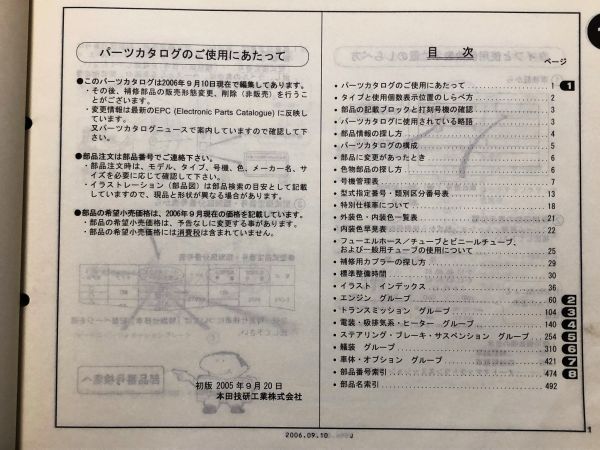 パーツカタログのご使用にあたって
●このパーツカタログは2006年9月10日現在で編集してあります。
・その後、補修部品の販売形態変更、削除（非販売）を行うこ
とがございます。
・変更情報は最新のEPC (Electronic Parts Catalogue) に反映
しています。
又パーツカタログニュースで案内していますので確認して下
さい。
●部品注文は部品番号でご連絡下さい。
・部品注文時は、モデル、タイプ、号機、色、メーカー名、サ
イズを必要に応じて確認して下さい。
・イラストレーション（部品図）は部品検索の目安として記載
していますので、現品と形状が異なる場合があります。
●部品の希望小売価格は、2006年9月現在の価格を記載しています。
・部品の希望小売価格は、予告なしに変更する事があります。
・部品の希望小売価格には消費税は含まれていません。
初版 2005年9月20日
本田技研工業株式会社
目 次
ページ
・パーツカタログのご使用にあたって 1 1
・タイプと使用個数表示位置のしらべ方 2
・部品の記載ブロックと打刻号機の確認 3
・パーツカタログに使用されている略語 3
・部品情報の探し方 4
・パーツカタログの構成 5
・部品に変更があったとき 6
・色物部品の探し方 6
・号機管理表 7
・型式指定番号・類別区分番号表 13
・特別仕様車について 18
・外装色・内装色一覧表 21
・内装色早見表 22
・フューエルホース／チューブとビニールチューブ、
および一般用チューブの使用について 25
・補修用カプラーの探し方 29
・標準整備時間 30
・イラスト インデックス 36
・エンジン グループ 60 2
・トランスミッション グループ 104 3
・電装・吸排気系・ヒーター グループ 140 4
・ステアリング・ブレーキ・サスペンション グループ 254 5
・艤装 グループ 310 6
・車体・オプション グループ 421 7
・部品番号索引 474 8
・部品名索引 492
2006.09.10 J
1